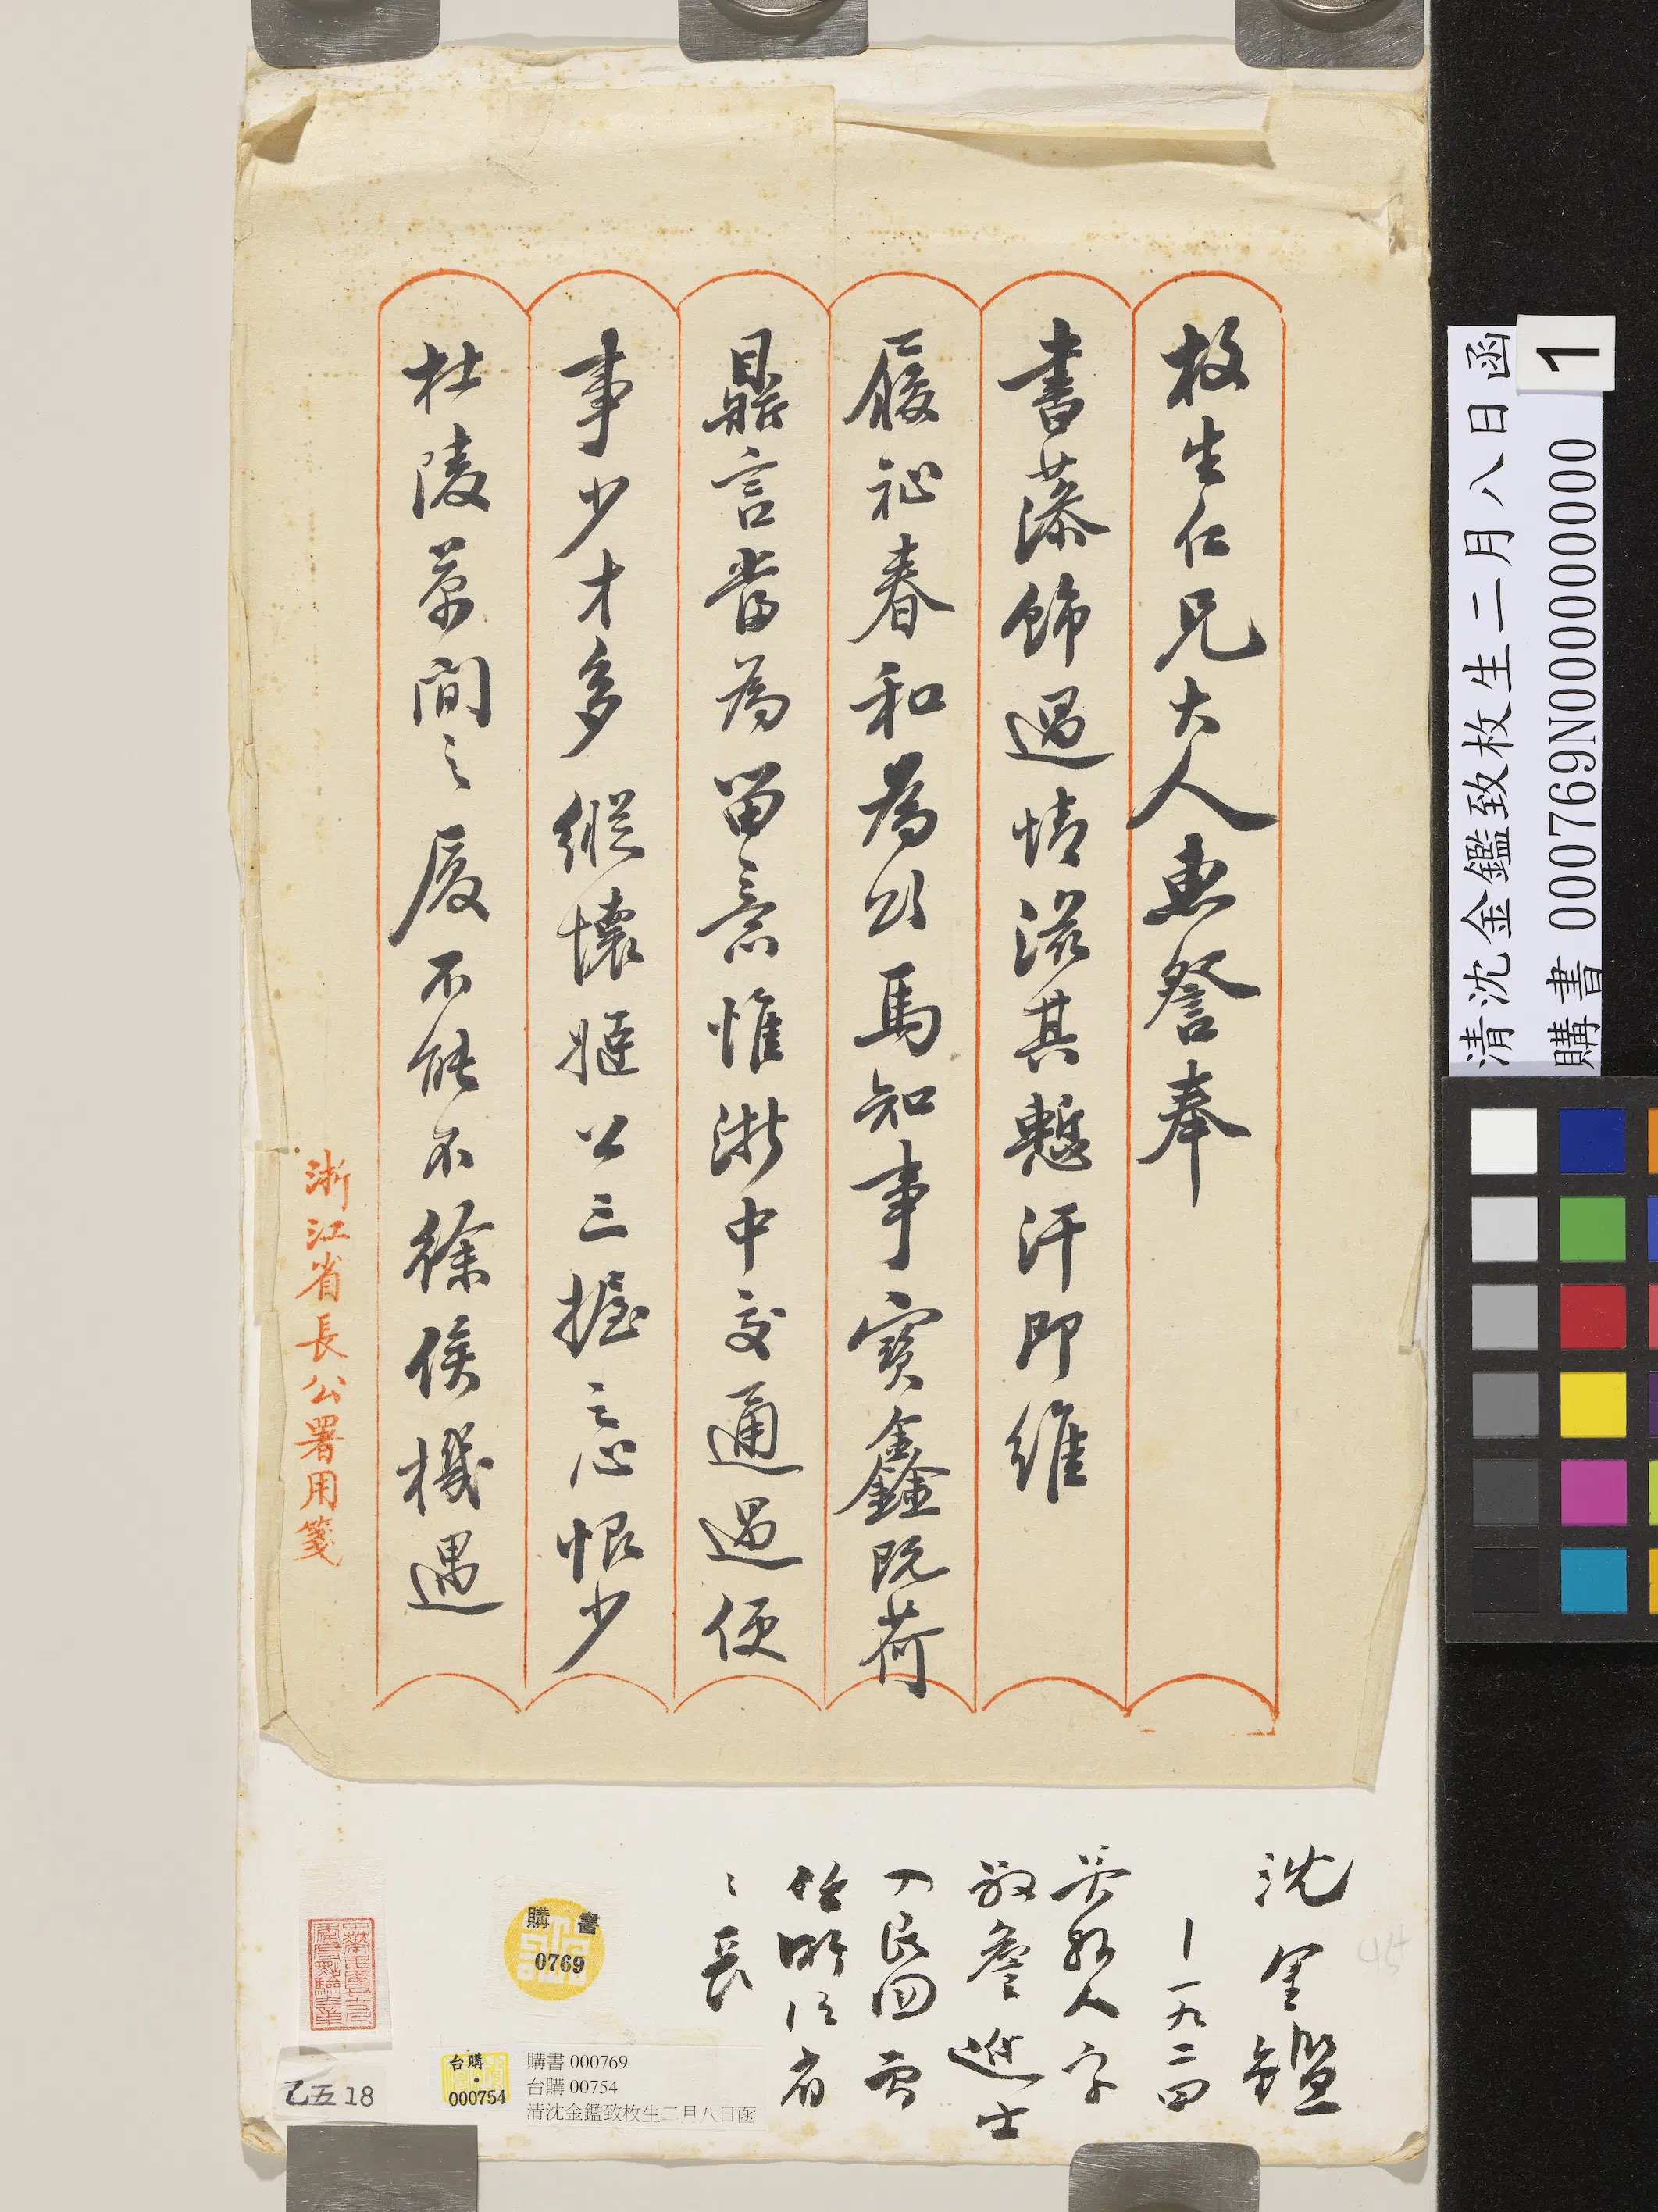 枚生仁兄大人惠詧奉
書藻飾過情滋其慙汗即維
履祉春和為頌馬知事寶鑫既荷
鼎言當為留意惟浙中交通過便
事少才多縱懷姬公三握之心恨少
杜陵萬間之廈不能不徐俟機遇
浙江省長公署用箋
沈金鑑
—一九二四
吳興人字
叔詹進士
入民國曾
任浙江省
長
購書
0769
乙五18
台購
000754
購書 000769
台購 00754
清沈金鑑致枚生二月八日函
清沈金鑑致枚生二月八日函
購書 000769N000000000
1
45